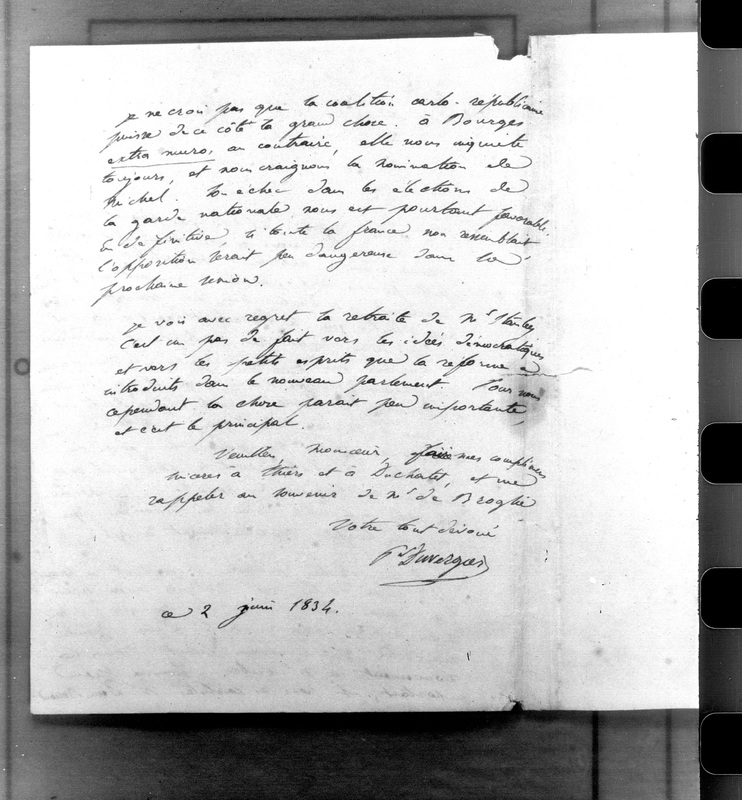 je ne crois pas que la coalition carlo-républicaine
puisse de ce côté là grand chose. à Bourges
extra muros, au contraire, elle nous inquiète
toujours, et nous craignons la nomination de
Michel. Son échec dans les élections de
la garde nationale nous est pourtant favorable.
En définitive, si toute la france nous ressemblait
l'opposition serait peu dangereuse dans la
prochaine session.
je vois avec regret la retraite de Mr Stanley
C'est un pas de fait vers les idées démocratiques
et vers les petits esprits que la reforme a
introduits dans le nouveau parlement. Pour nous
cependant la chose parait peu importante,
et c'est le principal.
Veuillez, monsieur, faire mes complimens
sincères à Thiers et à Duchatel, et me
rappeler au souvenir de Mr de Broglie
Votre tout dévoué
Pr Duvergier
ce 2 juin 1834.